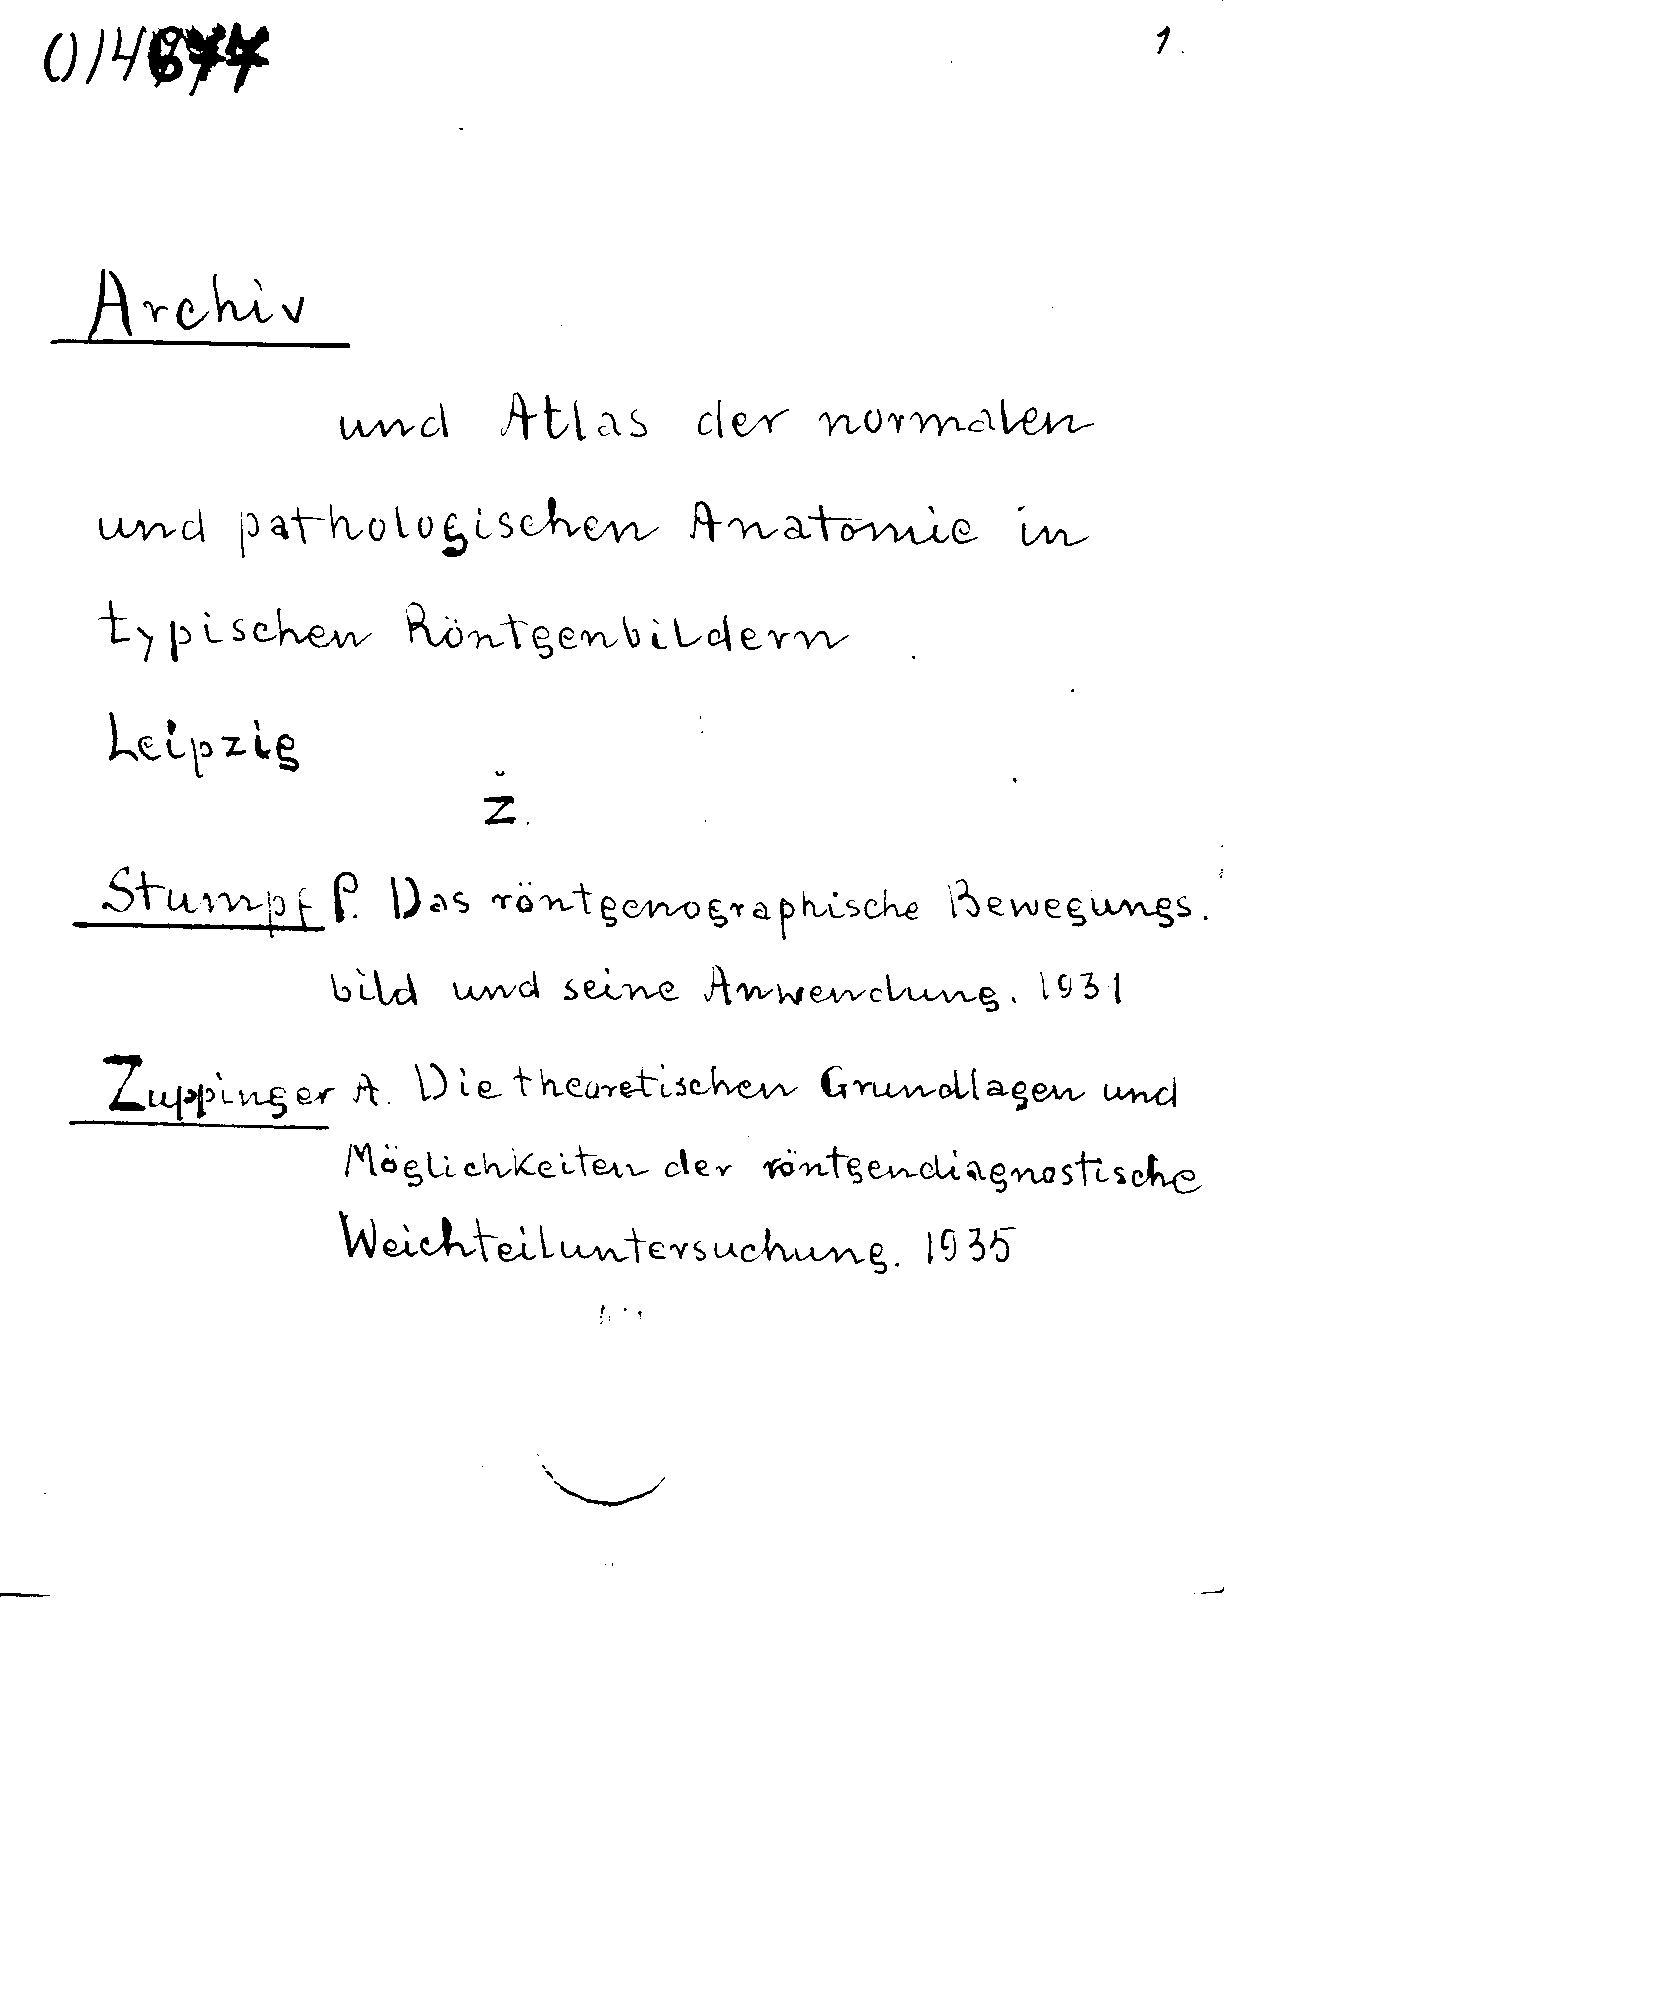 1.
Archiv
und Atlas der normalen
und pathologischen Anatomie in
typischen Röntgenbildern
Leipzig
Ž.
Stumpf P. Das röntgenographische Bewegungs.
bild und seine Anwendung. 1931
Zuppinger A. Die theoretischen Grundlagen und
Möglichkeiten der röntgendiagnostische
Weichteiluntersuchung. 1935